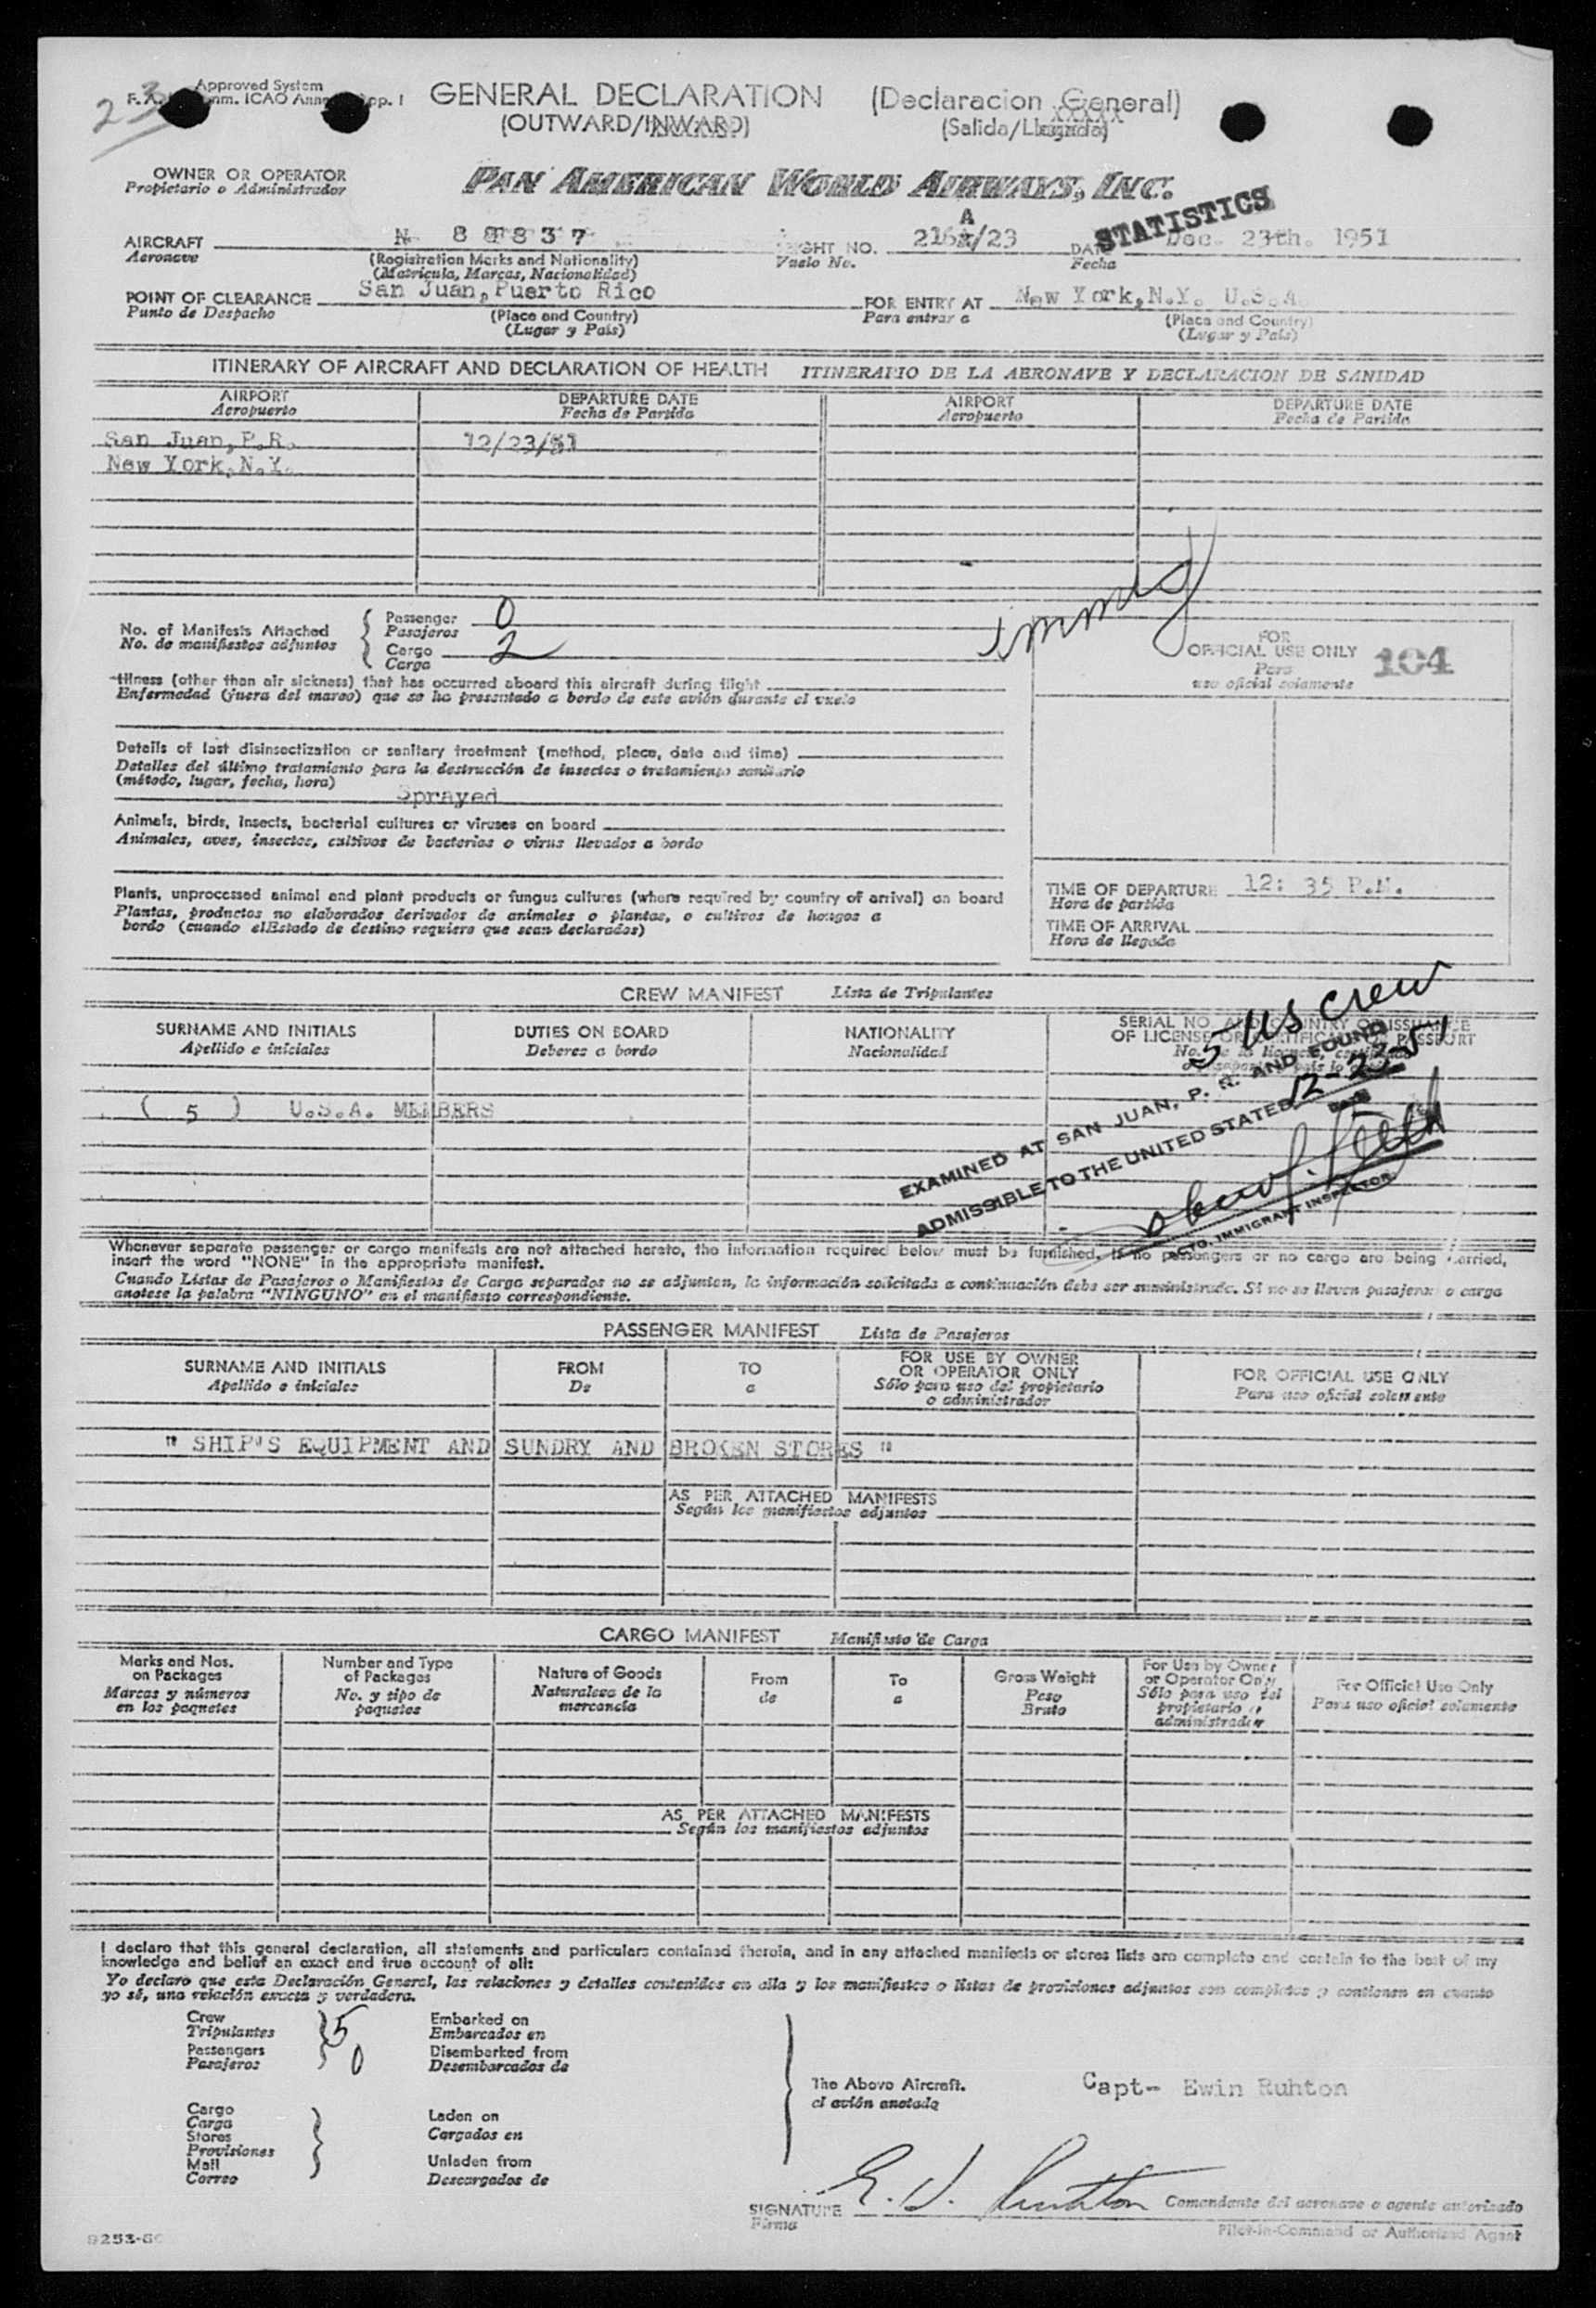 23
Approved System
GENERAL DECLARATION (Declaracion General)
(OUTWARD/INWARD) (Salida/Llegada)
OWNER OR OPERATOR
Propietario o Administrador
PAN AMERICAN WORLD AIRWAYS, INC.
STATISTICS
AIRCRAFT N 88837 FLIGHT NO. 216A/23 DATE Dec. 23th. 1951
Aeronave (Registration Marks and Nationality) Vuelo No. Fecha
(Matricula, Marcas, Nacionalidad)
POINT OF CLEARANCE San Juan, Puerto Rico FOR ENTRY AT New York, N.Y. U.S.A.
Punto de Despacho (Place and Country) Para entrar a (Place and Country)
(Lugar y Pais) (Lugar y Pais)
ITINERARY OF AIRCRAFT AND DECLARATION OF HEALTH ITINERARIO DE LA AERONAVE Y DECLARACION DE SANIDAD
AIRPORT DEPARTURE DATE AIRPORT DEPARTURE DATE
Aeropuerto Fecha de Partida Aeropuerto Fecha de Partida
San Juan, P.R. 12/23/51
New York, N.Y.
immig
No. of Manifests Attached Passenger 0
No. de manifiestos adjuntos Pasajeros
Cargo 2
Carga
FOR
OFFICIAL USE ONLY 104
Para
uso oficial solamente
Illness (other than air sickness) that has occurred aboard this aircraft during flight
Enfermedad (fuera del mareo) que se ha presentado a bordo de este avión durante el vuelo
Details of last disinsectization or sanitary treatment (method, place, date and time)
Detalles del último tratamiento para la destrucción de insectos o tratamiento sanitario
(método, lugar, fecha, hora) Sprayed
Animals, birds, insects, bacterial cultures or viruses on board
Animales, aves, insectos, cultivos de bacterias o virus llevados a bordo
Plants, unprocessed animal and plant products or fungus cultures (where required by country of arrival) on board
Plantas, productos no elaborados derivados de animales o plantas, o cultivos de hongos a
bordo (cuando elEstado de destino requiera que sean declarados)
TIME OF DEPARTURE 12: 35 P.M.
Hora de partida
TIME OF ARRIVAL
Hora de llegada
CREW MANIFEST Lista de Tripulantes
5 US crew
SURNAME AND INITIALS DUTIES ON BOARD NATIONALITY SERIAL NO. AND COUNTRY OF ISSUANCE
Apellido e iniciales Deberes a bordo Nacionalidad OF LICENSE OR CERTIFICATE OR PASSPORT
( 5 ) U.S.A. MEMBERS
EXAMINED AT SAN JUAN, P. R. AND FOUND
ADMISSIBLE TO THE UNITED STATES 12-23-51
Date
IMMIGRANT INSPECTOR
Whenever separate passenger or cargo manifests are not attached hereto, the information required below must be furnished. If no passengers or no cargo are being carried,
insert the word "NONE" in the appropriate manifest.
Cuando Listas de Pasajeros o Manifiestos de Carga separados no se adjunten, la información solicitada a continuación debe ser suministrada. Si no se llevan pasajeros o carga
anotese la palabra "NINGUNO" en el manifiesto correspondiente.
PASSENGER MANIFEST Lista de Pasajeros
SURNAME AND INITIALS FROM TO FOR USE BY OWNER OR OPERATOR ONLY FOR OFFICIAL USE ONLY
Apellido e iniciales De a Sólo para uso del propietario o administrador Para uso oficial solamente
" SHIP'S EQUIPMENT AND SUNDRY AND BROKEN STORES "
AS PER ATTACHED MANIFESTS
Según los manifiestos adjuntos
CARGO MANIFEST Manifiesto de Carga
Marks and Nos. on Packages Number and Type of Packages Nature of Goods From To Gross Weight For Use by Owner or Operator Only For Official Use Only
Marcas y números en los paquetes No. y tipo de paquetes Naturaleza de la mercancía de a Peso Bruto Sólo para uso del propietario o administrador Para uso oficial solamente
AS PER ATTACHED MANIFESTS
Según los manifiestos adjuntos
I declare that this general declaration, all statements and particulars contained therein, and in any attached manifests or stores lists are complete and contain to the best of my
knowledge and belief an exact and true account of all:
Yo declaro que esta Declaración General, las relaciones y detalles contenidos en ella y los manifiestos o listas de provisiones adjuntos son completos y contienen en cuanto
yo sé, una relación exacta y verdadera.
Crew 5 Embarked on
Tripulantes Embarcados en
Passengers 0 Disembarked from
Pasajeros Desembarcados de
The Above Aircraft. Capt- Ewin Ruhton
el avión anotado
Cargo Laden on
Carga Cargados en
Stores
Provisiones
Mail Unladen from
Correo Descargados de
SIGNATURE Comandante del aeronave o agente autorizado
Firma Pilot-in-Command or Authorized Agent